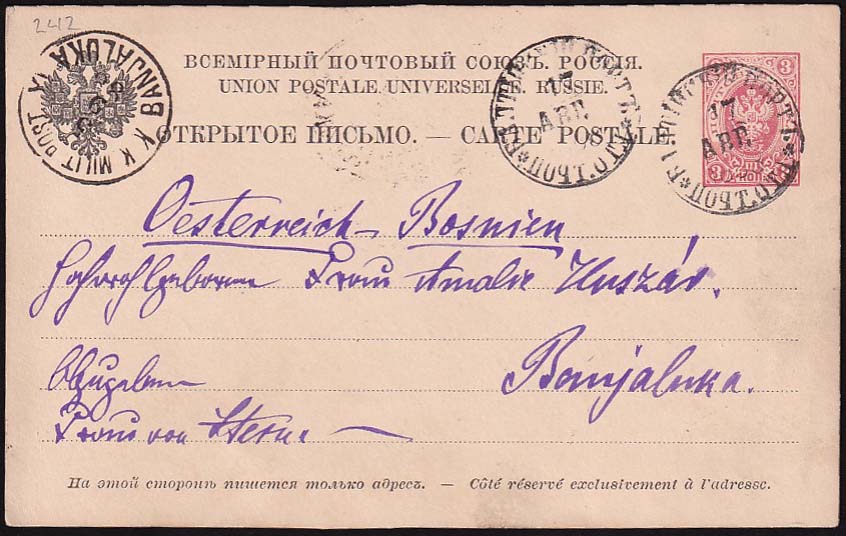 2412
ВСЕМІРНЫЙ ПОЧТОВЫЙ СОЮЗЪ. РОССІЯ.
UNION POSTALE UNIVERSELLE. RUSSIE.
ОТКРЫТОЕ ПИСЬМО. — CARTE POSTALE.
K K MILIT. POST BANJALUKA
17
АВГ.
17
АВГ.
3
3
3
Oesterreich Bosnien
Hochwohlgeboren Frau Amalie Huszár.
Banjaluka.
Abzugeben
Frau von Stern
На этой сторонѣ пишется только адресъ. — Côté réservé exclusivement à l'adresse.